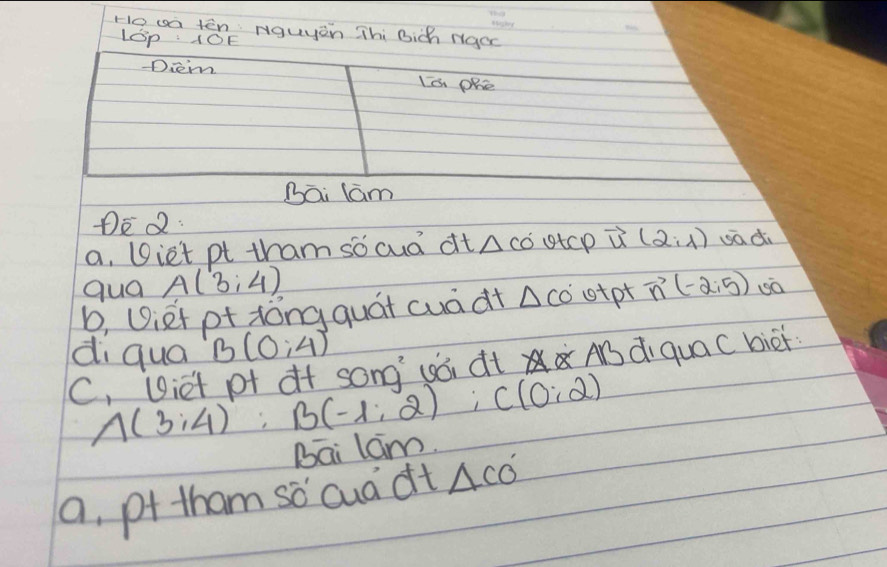 Họ và tên: Nguyễn Thị Bích Ngọc
Lớp: 10E
Điểm
Lời phê
Bài làm
Đề 2:
a. Viết pt tham số của đt Δ có vtcp u⃗ (2;1) và đi
qua A(3;4)
b, Viết pt tổng quát của đt Δ có vtpt n⃗ (-2;5) và
đi qua B(0;4)
C, Viết pt đt song² với đt AB đi qua C biết:
A(3;4) ; B(-1;2) ; C(0;2)
Bài làm.
a, pt tham số của đt Δ có